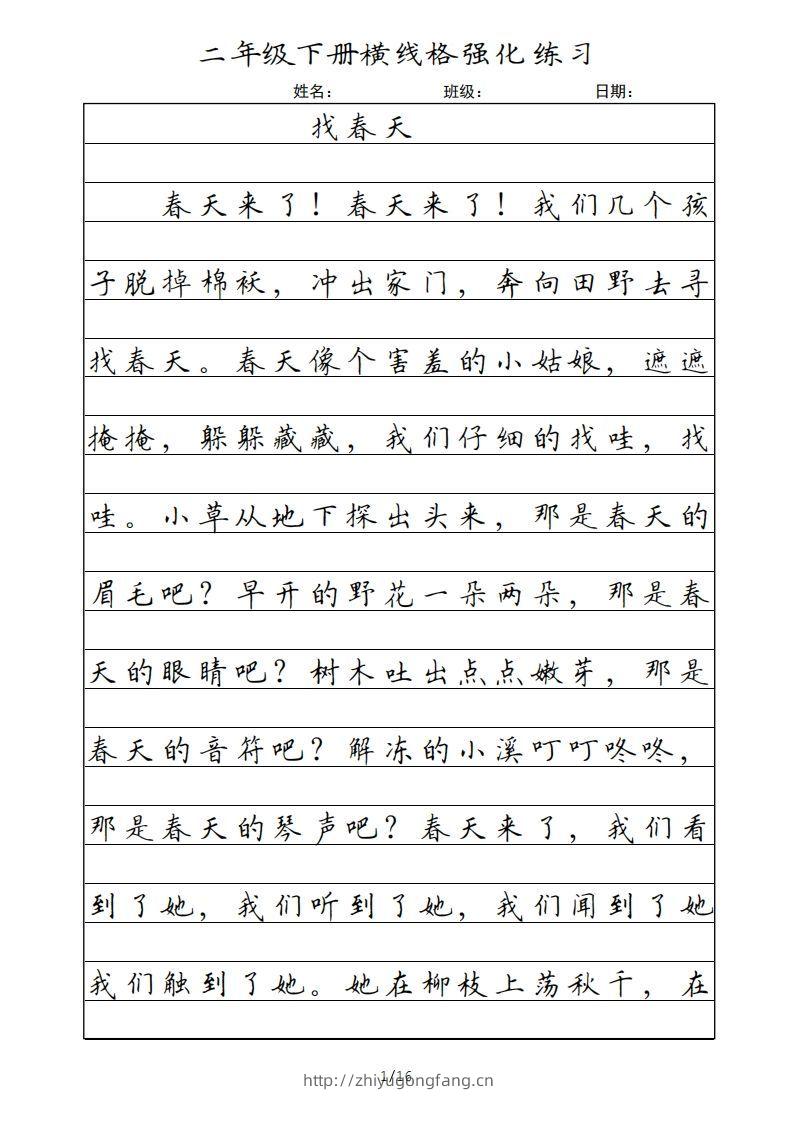 二年级下册横线格强化练习
姓名： 班级： 日期：
找春天
春天来了！春天来了！我们几个孩
子脱掉棉袄，冲出家门，奔向田野去寻
找春天。春天像个害羞的小姑娘，遮遮
掩掩，躲躲藏藏，我们仔细的找哇，找
哇。小草从地下探出头来，那是春天的
眉毛吧？早开的野花一朵两朵，那是春
天的眼睛吧？树木吐出点点嫩芽，那是
春天的音符吧？解冻的小溪叮叮咚咚，
那是春天的琴声吧？春天来了，我们看
到了她，我们听到了她，我们闻到了她
我们触到了她。她在柳枝上荡秋千，在
1/16
http://zhiyugongfang.cn